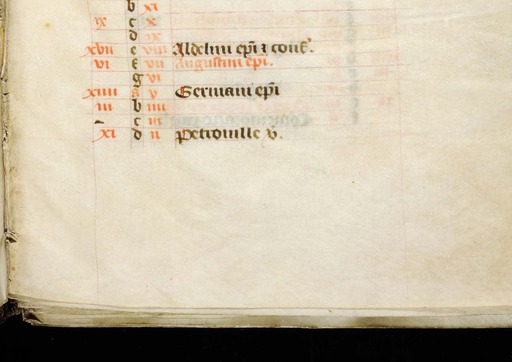 b xi
ix c x
d ix
xvii e viii Aldelmi ep̄i ⁊ conf̄.
vi f vii Augustini ep̄i.
g vi
xiiii a v Germani ep̄i
iii b iiii
c iii
xi d ii Petronille v̄.